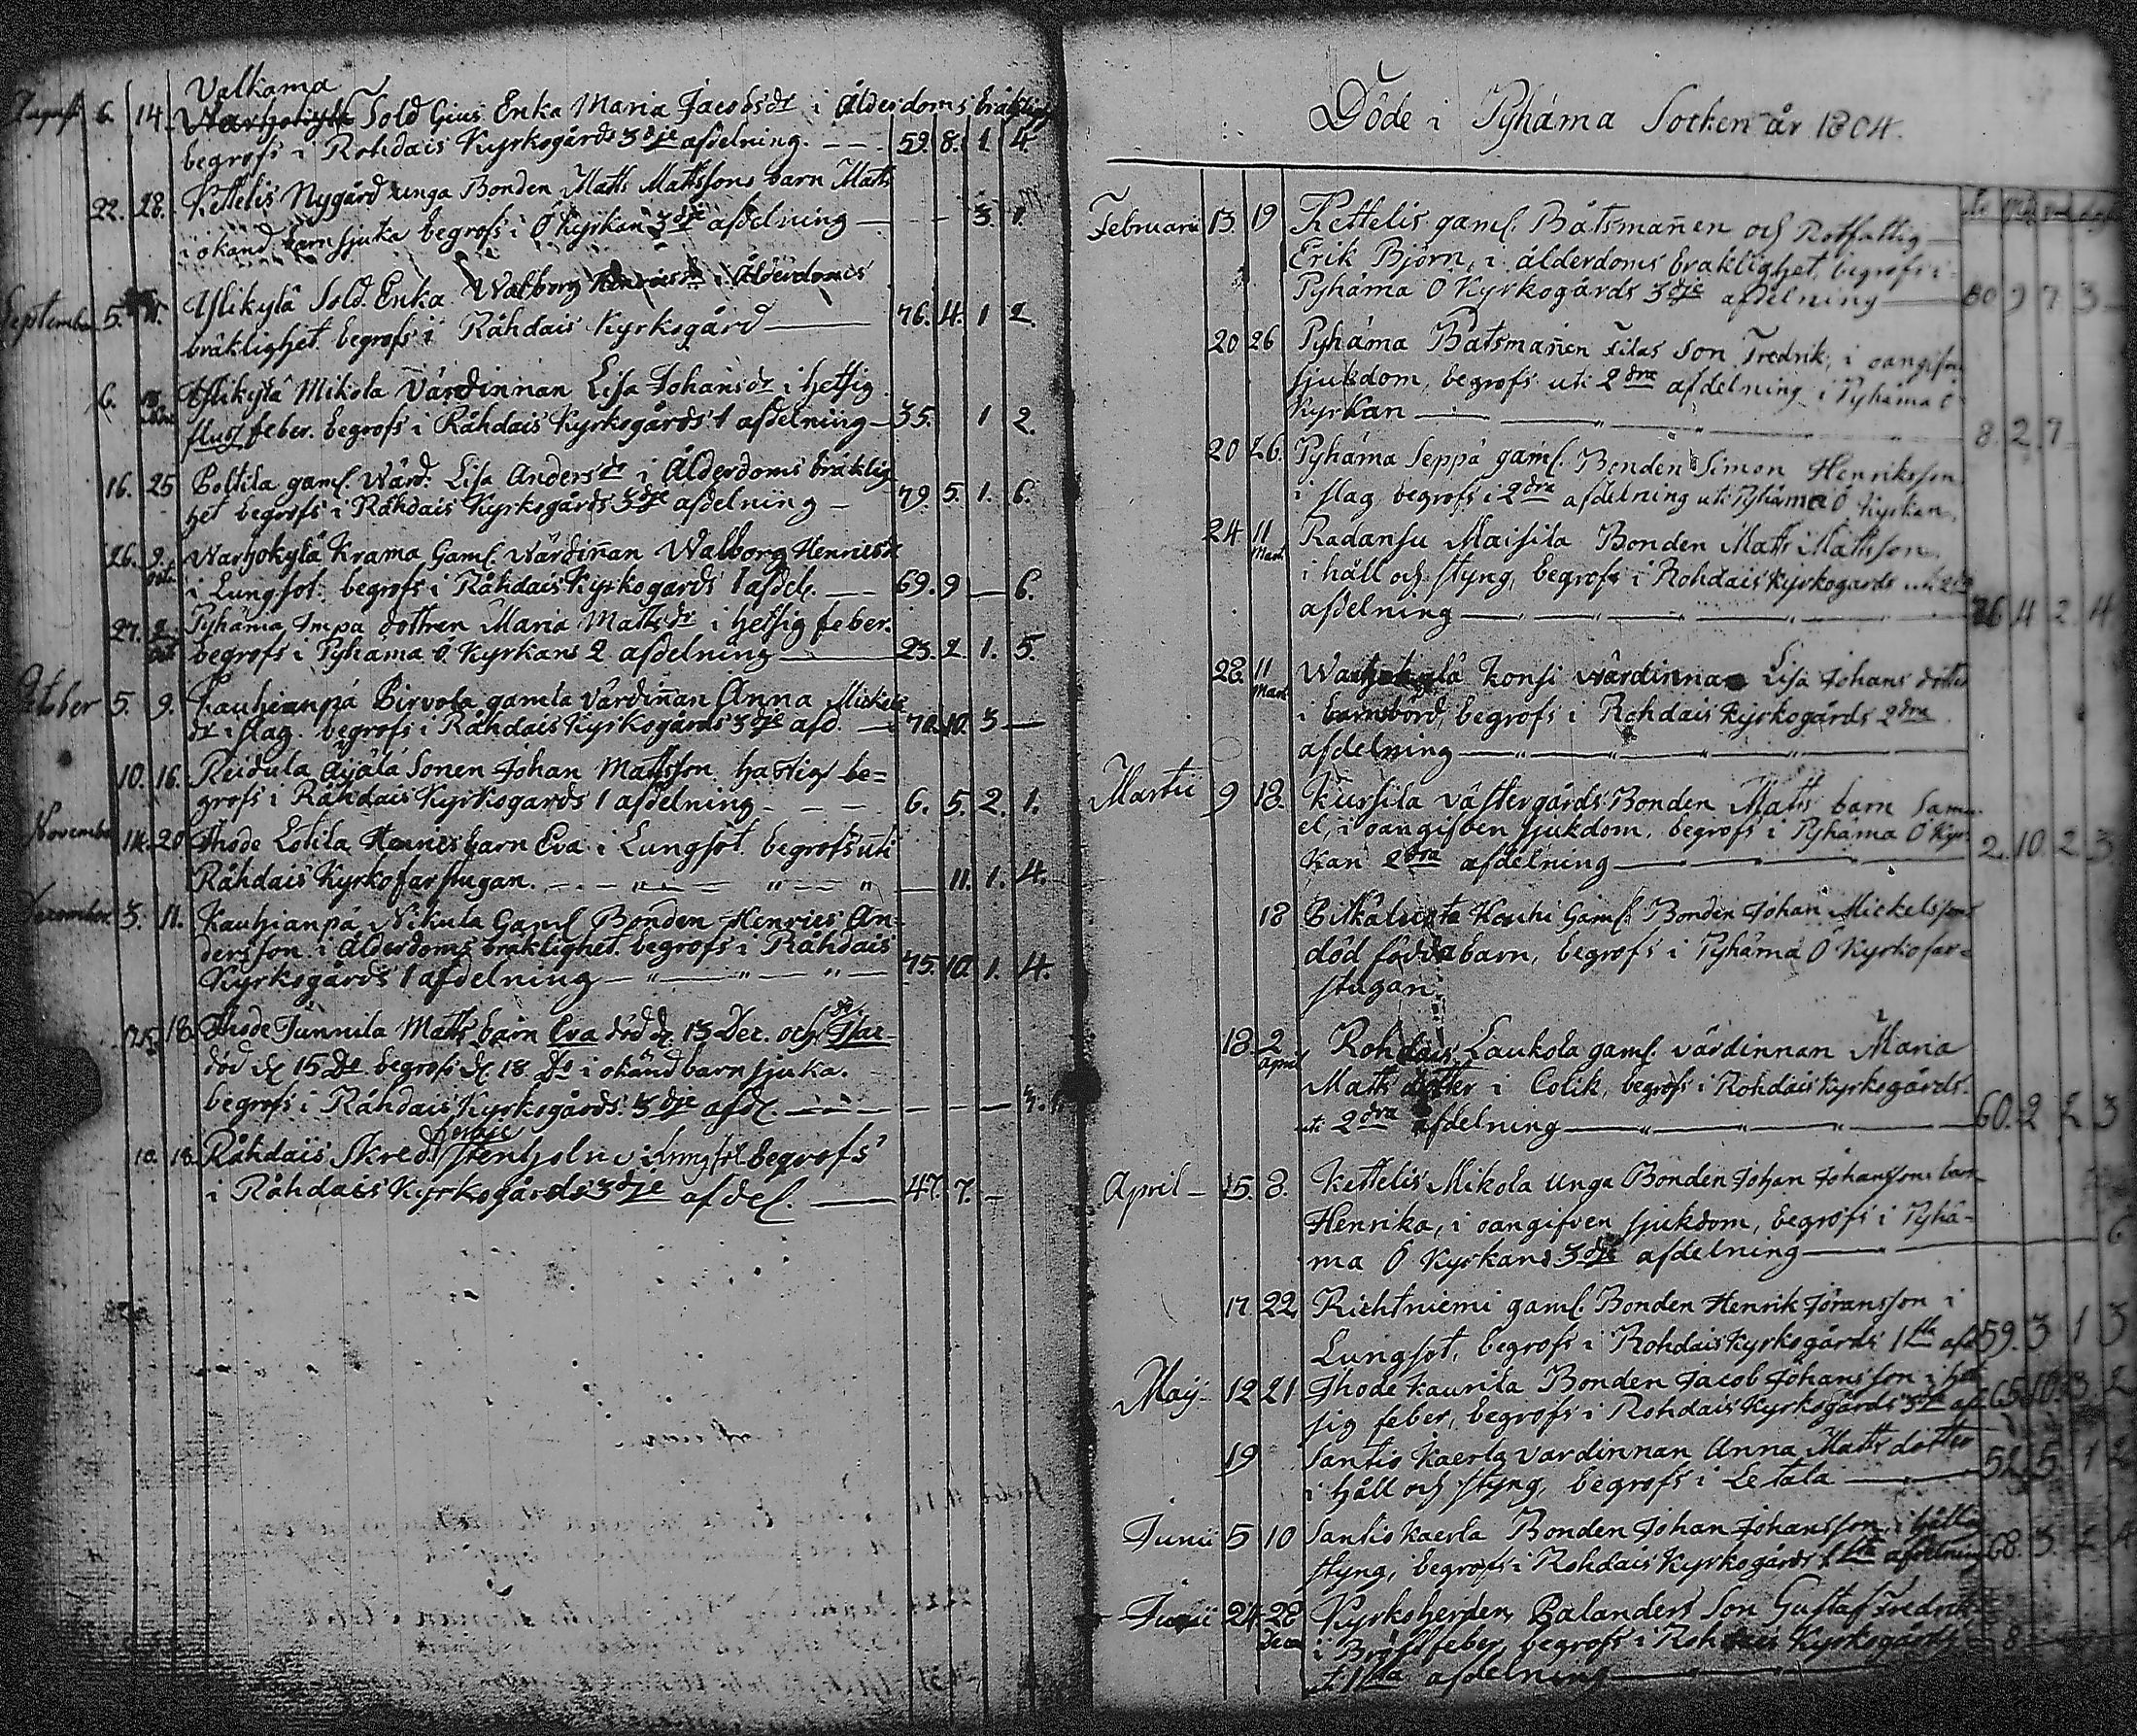 Valkama
Augusti 6. 14. Sold Gius Enka Maria Jacobsdr i Ålderdoms bräklighet
begrofs i Rohdais Kyrkogårds 3dje afdelning. 59. 8. 1. 4.
22. 28. Kettelis Nygård unga Bonden Matts Mattssons barn Matts
i okänd barnsjuka begrofs i Ö Kyrkan 3dje afdelning 3. 1.
September 5. Ylikylä Sold. Enka Walborg Henricsdr i Ålderdoms
bräklighet begrofs i Råhdais Kyrkogård 76. 4. 1 2.
6. Ylikylä Mikola Värdinnan Lisa Johansdr i hetsig
fluss feber. begrofs i Råhdais Kyrkogårds 1 afdelning 35. 1 2.
16. 25 Poltila gaml. Wärd. Lisa Andersdr i Ålderdoms bräklig
het begrofs i Råhdais Kyrkogårds 3dje afdelning 79. 5. 1. 6.
26. 9. Oct. Warhokylä Krama Gaml. Wärdiñan Walborg Henricsdr
i Lungsot. begrofs i Råhdais Kyrkogards 1 afdel. 69. 9 — 6.
27. 2. Oct Pyhäma Impa dottren Maria Mattsdr i hetsig feber.
begrofs i Pyhäma Ö Kyrkans 2 afdelning 23. 2 1. 5.
October 5. 9. Kauhianpä Birvola gamla värdiñan Anna Mickels
dr i slag. begrofs i Råhdais Kyrkogårds 3dje afd. 70. 10. 3 —
10. 16. Reidula Äijälä Sonen Johan Mattsson hastigt be=
grofs i Råhdais Kyrkogards 1 afdelning 6. 5. 2. 1.
November 14. 20 Ihode Lotila Henrics barn Eva i Lungsot begrofs uti
Råhdais Kyrkofarstugan. 11. 1. 4.
December 3. 11. Kauhianpä Nikula Gaml Bonden Henrics An=
dersson i Ålderdoms bräklighet begrofs i Råhdais
Kyrkogårds 1 afdelning 75. 10. 1. 4.
18. Ihode Junnila Matts barn Eva död d. 13 Dec. och
död d. 15 Do begrofs d. 18 Do i okänd barnsjuka.
begrofs i Råhdais Kyrkogårds 3dje afd.
10. 18 Råhdais Skredd Stenholm i Lungsot begrofs
i Råhdais Kyrkogårds 3dje afdel. 47. 7. —
Döde i Pyhäma Socken år 1804.
Februarii 13. 19 Kettelis gaml. Båtsmañen och Rotfattig
Erik Björn, i ålderdoms bräklighet, begrofs i
Pyhäma Ö Kyrkogårds 3dje afdelning 80 9 7 3
20 26 Pyhäma Båtsmañen Silas Son Fredrik, i oangifven
sjukdom, begrofs uti 2dra afdelning i Pyhäma Ö
Kyrkan 8. 2. 7
20 26. Pyhäma Seppä gaml. Bonden Simon Henriksson
i slag begrofs i 2dra afdelning uti Pyhäma Ö Kyrkan,
24 11 Mart. Radansu Maisila Bonden Matts Mattsson
i håll och styng, begrofs i Rohdais Kyrkogards uti 2dra
afdelning 4 2 4
28. 11 Mart. Konsi wärdinnan Lisa Johans dotter
i barnsbörd, begrofs i Rohdais Kyrkogårds 2dra
afdelning
Martii 9 18. Kursila Västergårds Bonden Matts barn Samu
el, i oangifven sjukdom, begrofs i Pyhäma Ö Kyr
kan 2dra afdelning 2. 10 2 3
18 Pitkäluoto Kouhi Gaml. Bonden Johan Mickelssons
död födda barn, begrofs i Pyhäma Ö Kyrkofar=
stugan.
18. 2 April Rohdais Laukola gaml. värdinnan Maria
Matts dotter i Colik, begrofs i Rohdais Kyrkogårds
uti 2dra afdelning 60. 2 2 3
April 8. Kettelis Mikola unga Bonden Johan Johanssons barn
Henrika, i oangifven sjukdom, begrofs i Pyhä=
ma Ö Kyrkans 3dje afdelning 6
17 22 Richtniemi gaml. Bonden Henrik Jöransson i
Lungsot, begrofs i Rohdais Kyrkogårds 1sta afd 59. 3 1 3
Maij 12 21 Ihode Kaurila Bonden Jacob Johansson i het
sig feber, begrofs i Rohdais Kyrkogårds 3dje afd 65. 10. 3. 2
19 Santio Kaerla värdinnan Anna Matts dotter
i håll och styng, begrofs i Letala 52. 5. 1 2
Junii 5 10 Santio Kaerla Bonden Johan Johansson, i håll
styng, begrofs i Rohdais Kyrkogårds 1sta afdelning 68. 3. 2 4
Junii 24. 28 Kyrkoherden Balanders Son Gustaf Fredrik
i Bröstfeber, begrofs i Rohdais Kyrkogårds 8
afdelning